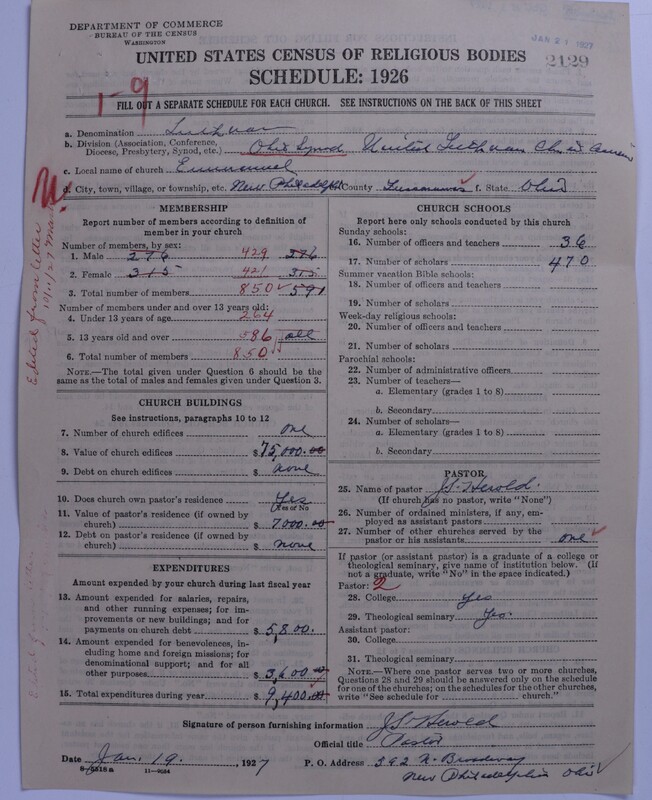 DEPARTMENT OF COMMERCE
BUREAU OF THE CENSUS
WASHINGTON
JAN 21 1927
2129
UNITED STATES CENSUS OF RELIGIOUS BODIES
SCHEDULE: 1926
1-9
FILL OUT A SEPARATE SCHEDULE FOR EACH CHURCH. SEE INSTRUCTIONS ON THE BACK OF THIS SHEET
a. Denomination Lutheran
b. Division (Association, Conference, Diocese, Presbytery, Synod, etc.) Ohio Synod United Lutheran Ch in America
c. Local name of church Emmanuel
d. City, town, village, or township, etc. New Philadelphia County Tuscarawas f. State Ohio
Edited from letter
MEMBERSHIP
Report number of members according to definition of
member in your church
Number of members, by sex:
1. Male 276 429 276
2. Female 315 421 315
3. Total number of members 850 591
Number of members under and over 13 years old:
4. Under 13 years of age 264
5. 13 years old and over 586 all
6. Total number of members 850
NOTE.—The total given under Question 6 should be
same as the total of males and females given under Question 3.
CHURCH BUILDINGS
See instructions, paragraphs 10 to 12
7. Number of church edifices one
8. Value of church edifices $75,000.00
9. Debt on church edifices $ none
10. Does church own pastor's residence Yes
(Yes or No
11. Value of pastor's residence (if owned by
church) $7000.00
12. Debt on pastor's residence (if owned by
church) $ none
EXPENDITURES
Amount expended by your church during last fiscal year
13. Amount expended for salaries, repairs,
and other running expenses; for im-
provements or new buildings; and for
payments on church debt $5,800.
14. Amount expended for benevolences, in-
cluding home and foreign missions; for
denominational support; and for all
other purposes $3,600.00
15. Total expenditures during year $9,400.00
CHURCH SCHOOLS
Report here only schools conducted by this church
Sunday schools:
16. Number of officers and teachers 36
17. Number of scholars 470
Summer vacation Bible schools:
18. Number of officers and teachers
19. Number of scholars
Week-day religious schools:
20. Number of officers and teachers
21. Number of scholars
Parochial schools:
22. Number of administrative officers
23. Number of teachers—
a. Elementary (grades 1 to 8)
b. Secondary
24. Number of scholars—
a. Elementary (grades 1 to 8)
b. Secondary
PASTOR
25. Name of pastor J.S. Herold
(If church has no pastor, write "None")
26. Number of ordained ministers, if any, em-
ployed as assistant pastors
27. Number of other churches served by the
pastor or his assistants one
If pastor (or assistant pastor) is a graduate of a college or
theological seminary, give name of institution below. (If
not a graduate, write "No" in the space indicated.)
Pastor: 2
28. College yes
29. Theological seminary Yes.
Assistant pastor:
30. College
31. Theological seminary
NOTE.—Where one pastor serves two or more churches,
Questions 28 and 29 should be answered only on the schedule
for one of the churches; on the schedules for the other churches,
write "See schedule for church."
Signature of person furnishing information J.S. Herold
Official title Pastor
Date Jan. 19, 1927 P. O. Address 392 N. Broadway
8-5318a 11-9084 New Philadelphia Ohio